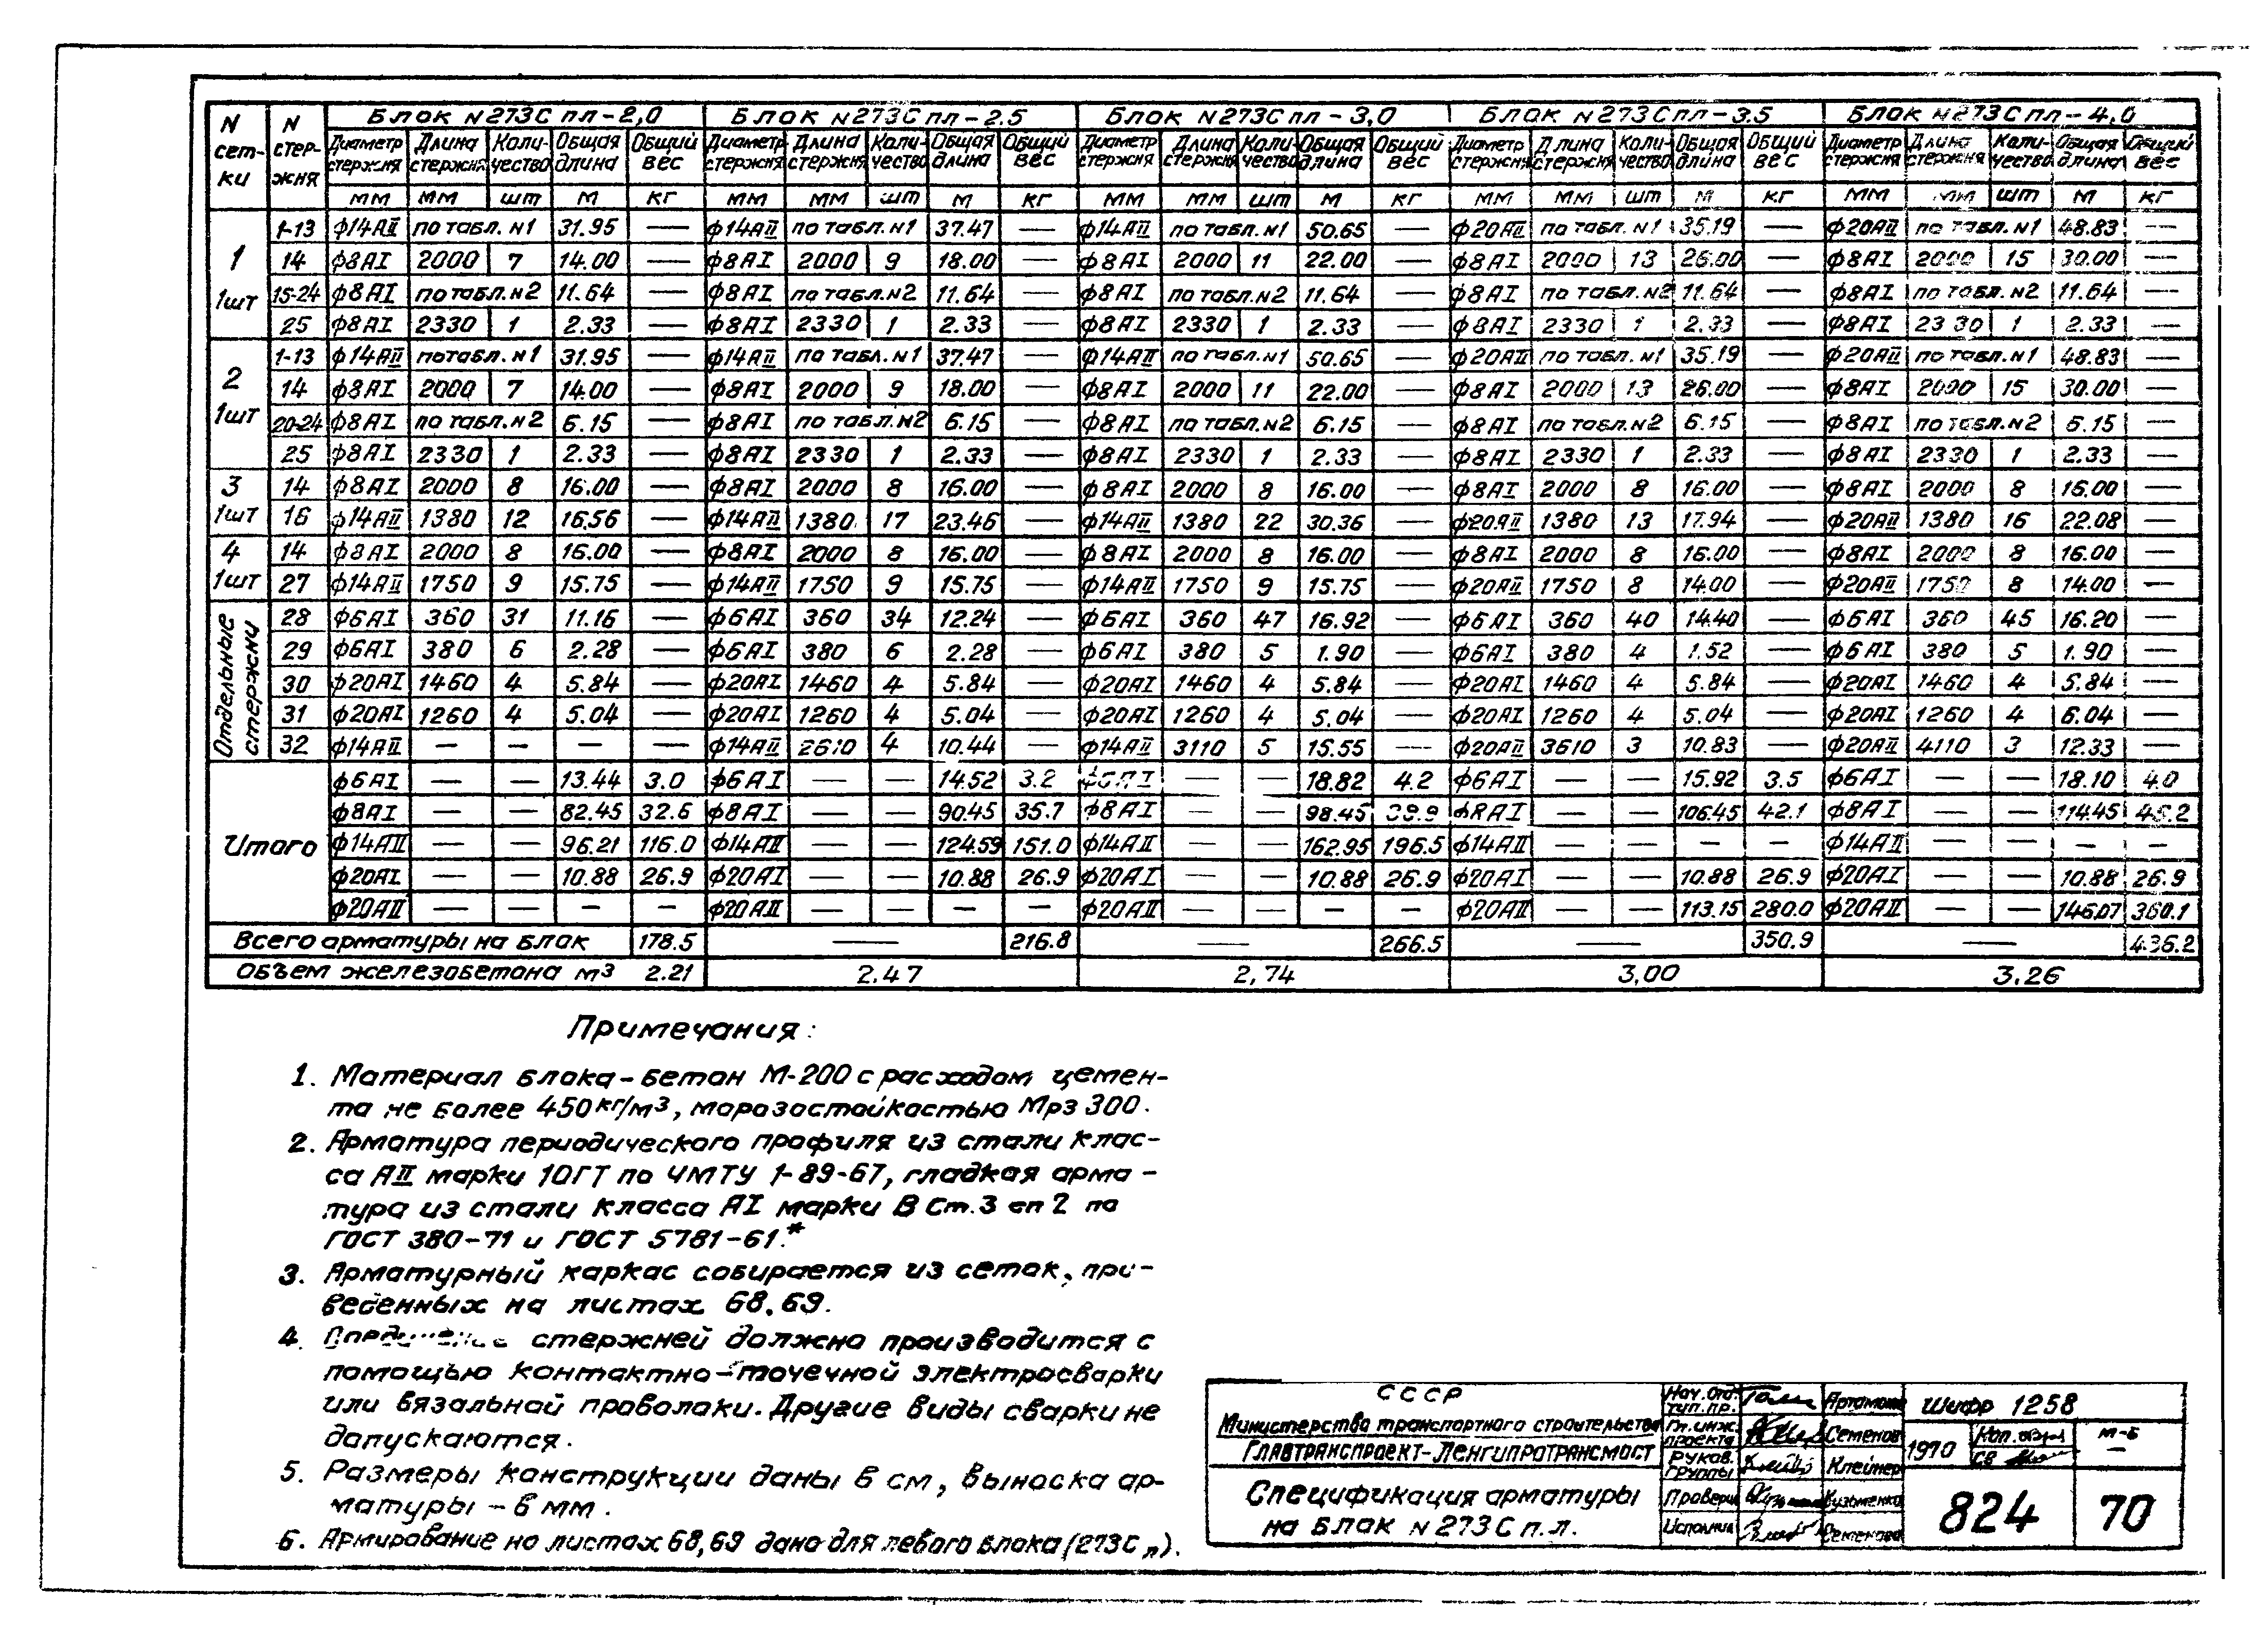 N сетки N стержня Блок N273С пл-2,0 Блок N273С пл-2.5 Блок N273С пл-3,0 Блок N273С пл-3.5 Блок N273С пл-4,0
Диаметр стержня Длина стержня Количество Общая длина Общий вес Диаметр стержня Длина стержня Количество Общая длина Общий вес Диаметр стержня Длина стержня Количество Общая длина Общий вес Диаметр стержня Длина стержня Количество Общая длина Общий вес Диаметр стержня Длина стержня Количество Общая длина Общий вес
мм мм шт м кг мм мм шт м кг мм мм шт м кг мм мм шт м кг мм мм шт м кг
1 1шт
1-13 ф14АII по табл. N1 31.95 — ф14АII по табл. N1 37.47 — ф14АII по табл. N1 50.65 — ф20АII по табл. N1 35.19 — ф20АII по табл. N1 48.83 —
14 ф8АI 2000 7 14.00 — ф8АI 2000 9 18.00 — ф8АI 2000 11 22.00 — ф8АI 2000 13 26.00 — ф8АI 2000 15 30.00 —
15-24 ф8АI по табл. N2 11.64 — ф8АI по табл. N2 11.64 — ф8АI по табл. N2 11.64 — ф8АI по табл. N2 11.64 — ф8АI по табл. N2 11.64 —
25 ф8АI 2330 1 2.33 — ф8АI 2330 1 2.33 — ф8АI 2330 1 2.33 — ф8АI 2330 1 2.33 — ф8АI 2330 1 2.33 —
2 1шт
1-13 ф14АII по табл. N1 31.95 — ф14АII по табл. N1 37.47 — ф14АII по табл. N1 50.65 — ф20АII по табл. N1 35.19 — ф20АII по табл. N1 48.83 —
14 ф8АI 2000 7 14.00 — ф8АI 2000 9 18.00 — ф8АI 2000 11 22.00 — ф8АI 2000 13 26.00 — ф8АI 2000 15 30.00 —
20-24 ф8АI по табл. N2 6.15 — ф8АI по табл. N2 6.15 — ф8АI по табл. N2 6.15 — ф8АI по табл. N2 6.15 — ф8АI по табл. N2 6.15 —
25 ф8АI 2330 1 2.33 — ф8АI 2330 1 2.33 — ф8АI 2330 1 2.33 — ф8АI 2330 1 2.33 — ф8АI 2330 1 2.33 —
3 1шт
14 ф8АI 2000 8 16.00 — ф8АI 2000 8 16.00 — ф8АI 2000 8 16.00 — ф8АI 2000 8 16.00 — ф8АI 2000 8 16.00 —
16 ф14АII 1380 12 16.56 — ф14АII 1380 17 23.46 — ф14АII 1380 22 30.36 — ф20АII 1380 13 17.94 — ф20АII 1380 16 22.08 —
4 1шт
14 ф8АI 2000 8 16.00 — ф8АI 2000 8 16.00 — ф8АI 2000 8 16.00 — ф8АI 2000 8 16.00 — ф8АI 2000 8 16.00 —
27 ф14АII 1750 9 15.75 — ф14АII 1750 9 15.75 — ф14АII 1750 9 15.75 — ф20АII 1750 8 14.00 — ф20АII 1750 8 14.00 —
Отдельные стержни
28 ф6АI 360 31 11.16 — ф6АI 360 34 12.24 — ф6АI 360 47 16.92 — ф6АI 360 40 14.40 — ф6АI 360 45 16.20 —
29 ф6АI 380 6 2.28 — ф6АI 380 6 2.28 — ф6АI 380 5 1.90 — ф6АI 380 4 1.52 — ф6АI 380 5 1.90 —
30 ф20АI 1460 4 5.84 — ф20АI 1460 4 5.84 — ф20АI 1460 4 5.84 — ф20АI 1460 4 5.84 — ф20АI 1460 4 5.84 —
31 ф20АI 1260 4 5.04 — ф20АI 1260 4 5.04 — ф20АI 1260 4 5.04 — ф20АI 1260 4 5.04 — ф20АI 1260 4 6.04 —
32 ф14АII — — — — ф14АII 2610 4 10.44 — ф14АII 3110 5 15.55 — ф20АII 3610 3 10.83 — ф20АII 4110 3 12.33 —
Итого
ф6АI — — 13.44 3.0 ф6АI — — 14.52 3.2 ф6АI — — 18.82 4.2 ф6АI — — 15.92 3.5 ф6АI — — 18.10 4.0
ф8АI — — 82.45 32.6 ф8АI — — 90.45 35.7 ф8АI — — 98.45 38.9 ф8АI — — 106.45 42.1 ф8АI — — 114.45 45.2
ф14АII — — 96.21 116.0 ф14АII — — 124.59 151.0 ф14АII — — 162.95 196.5 ф14АII — — — — ф14АII — — — —
ф20АI — — 10.88 26.9 ф20АI — — 10.88 26.9 ф20АI — — 10.88 26.9 ф20АI — — 10.88 26.9 ф20АI — — 10.88 26.9
ф20АII — — — — ф20АII — — — — ф20АII — — — — ф20АII — — 113.15 280.0 ф20АII — — 146.07 360.1
Всего арматуры на блок 178.5 — 216.8 — 266.5 — 350.9 — 436.2
Объем железобетона м³ 2.21 2.47 2,74 3,00 3.26
Примечания:
1. Материал блока - бетон М-200 с расходом цемен-
та не более 450 кг/м³, морозостойкостью Мрз 300.
2. Арматура периодического профиля из стали клас-
са АII марки 10ГТ по ЧМТУ 1-89-67, гладкая арма-
тура из стали класса АI марки В Ст.3 сп 2 по
ГОСТ 380-71 и ГОСТ 5781-61.*
3. Арматурный каркас собирается из сеток, при-
веденных на листах 68,69.
4. стержней должно производится с
помощью контактно-точечной электросварки
или вязальной проволоки. Другие виды сварки не
допускаются.
5. Размеры конструкции даны в см, выноска ар-
матуры - в мм.
6. Армирование на листах 68,69 дано для левого блока (273С л).
СССР
Министерство транспортного строительства
Главтранспроект-Ленгипротрансмост
Спецификация арматуры
на блок N273С п.л.
Нач. отд. тип. пр. Артамонов
Гл. инж. проекта Семенов
Руков. группы Клейнер
Проверил Кузьменко
Исполнил Семенова
Шифр 1258
1970 Коп. СВ м-б —
824 70